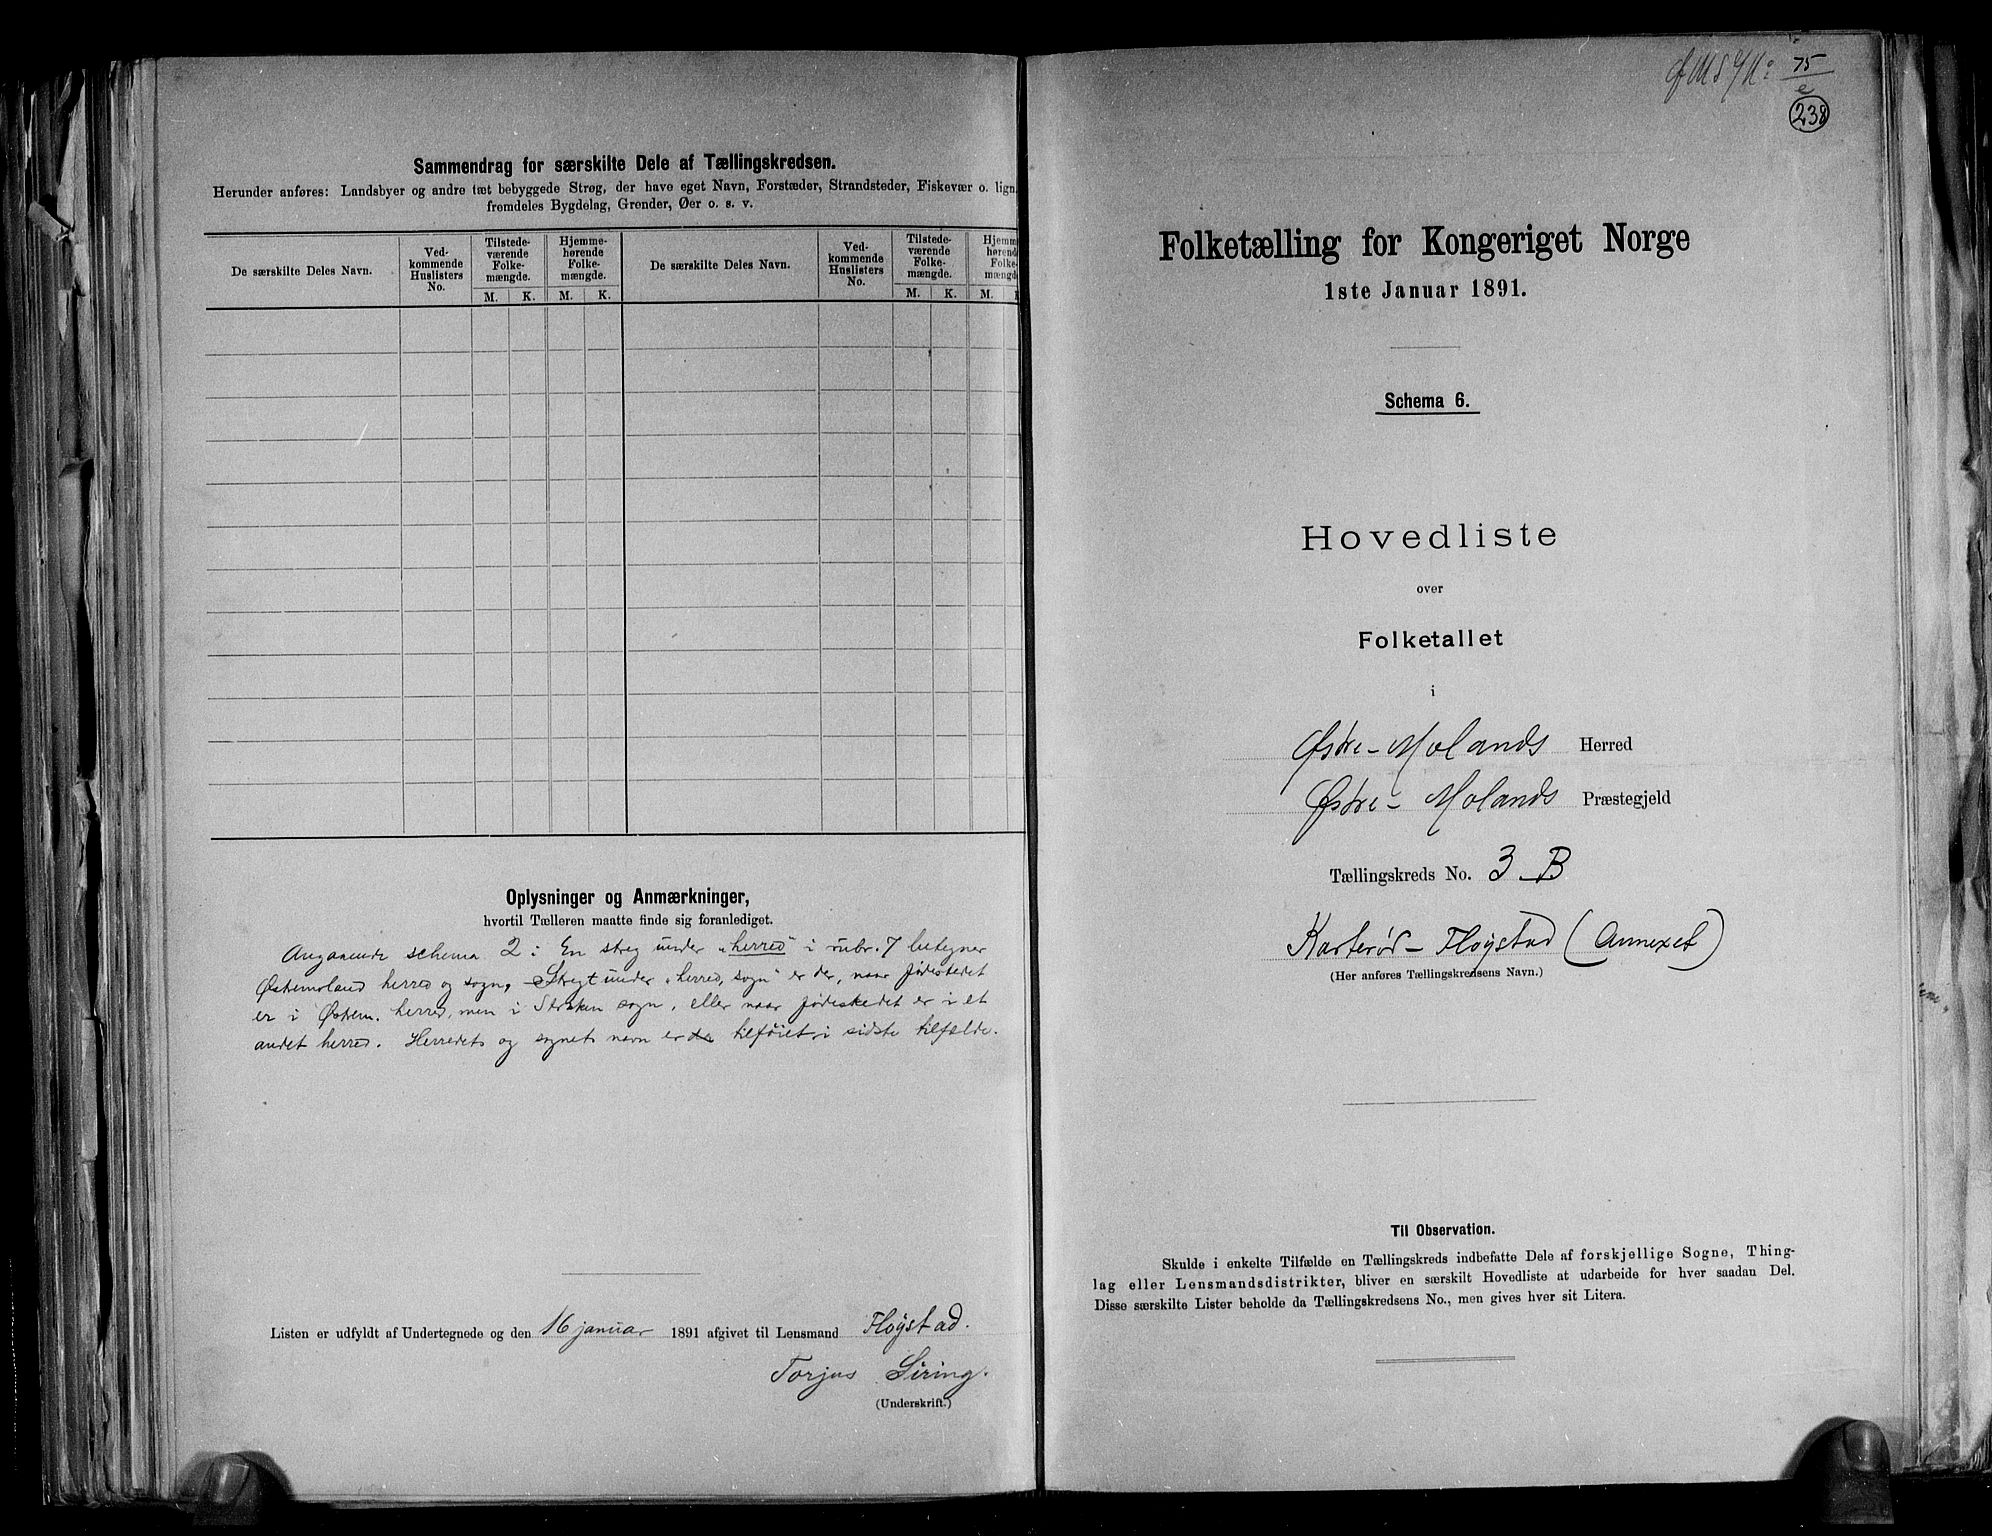 Sammendrag for særskilte Dele af Tællingskredsen.
Herunder anføres: Landsbyer og andre tæt bebyggede Strøg, der have eget Navn, Forstæder, Strandsteder, Fiskevær o. lign.
fremdeles Bygdelag, Grender, Øer o. s. v.
De særskilte Deles Navn.
Ved-
kommende
Huslisters
No.
Tilstede-
værende
Folke-
mængde.
Hjemme-
hørende
Folke-
mængde.
M. K. M. K.
De særskilte Deles Navn.
Ved-
kommende
Huslisters
No.
Tilstede-
værende
Folke-
mængde.
Hjemm
hørend
Folke-
mængd
M. K. M.
Oplysninger og Anmærkninger,
hvortil Tælleren maatte finde sig foranlediget.
Angaaende schema 2: En streg under "herred" i rubr. 7 betegner
Østremoland herred og sogn, Stregt under "herred, sogn" er der, naar fødestedet
er i Østrem. herred, men i Stokken sogn, eller naar fødestedet er i et
andet herred. Herredets og sognets navn er tilføiet i sidste tilfælde.
Listen er udfyldt af Undertegnede og den 16 januar 1891 afgivet til Lensmand Fløystad.
Torjus Siring.
(Underskrift.)
75
e
238
Folketælling for Kongeriget Norge
1ste Januar 1891.
Schema 6.
Hovedliste
over
Folketallet
i
Østre-Molands Herred
Østre-Molands Præstegjeld
Tællingskreds No. 3 B
Karterød-Fløystad (Annexet)
(Her anføres Tællingskredsens Navn.)
Til Observation.
Skulde i enkelte Tilfælde en Tællingskreds indbefatte Dele af forskjellige Sogne, Thing-
lag eller Lensmandsdistrikter, bliver en særskilt Hovedliste at udarbeide for hver saadan Del.
Disse særskilte Lister beholde da Tællingskredsens No., men gives hver sit Litera.